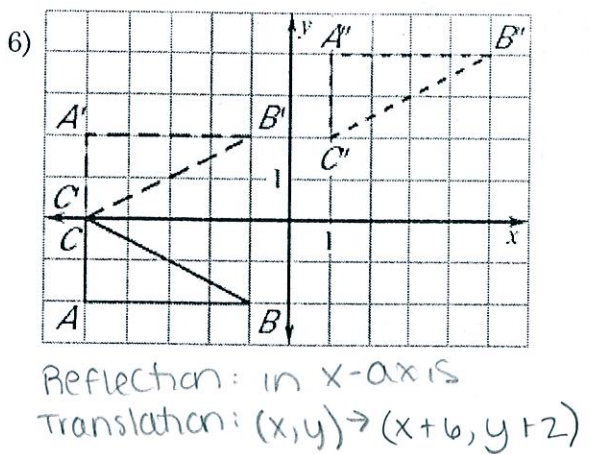 6)
y
A" B"
A' B'
C"
1
C'
C 1 x
A B
Reflection: in x-axis
Translation: (x,y)→(x+6, y+2)